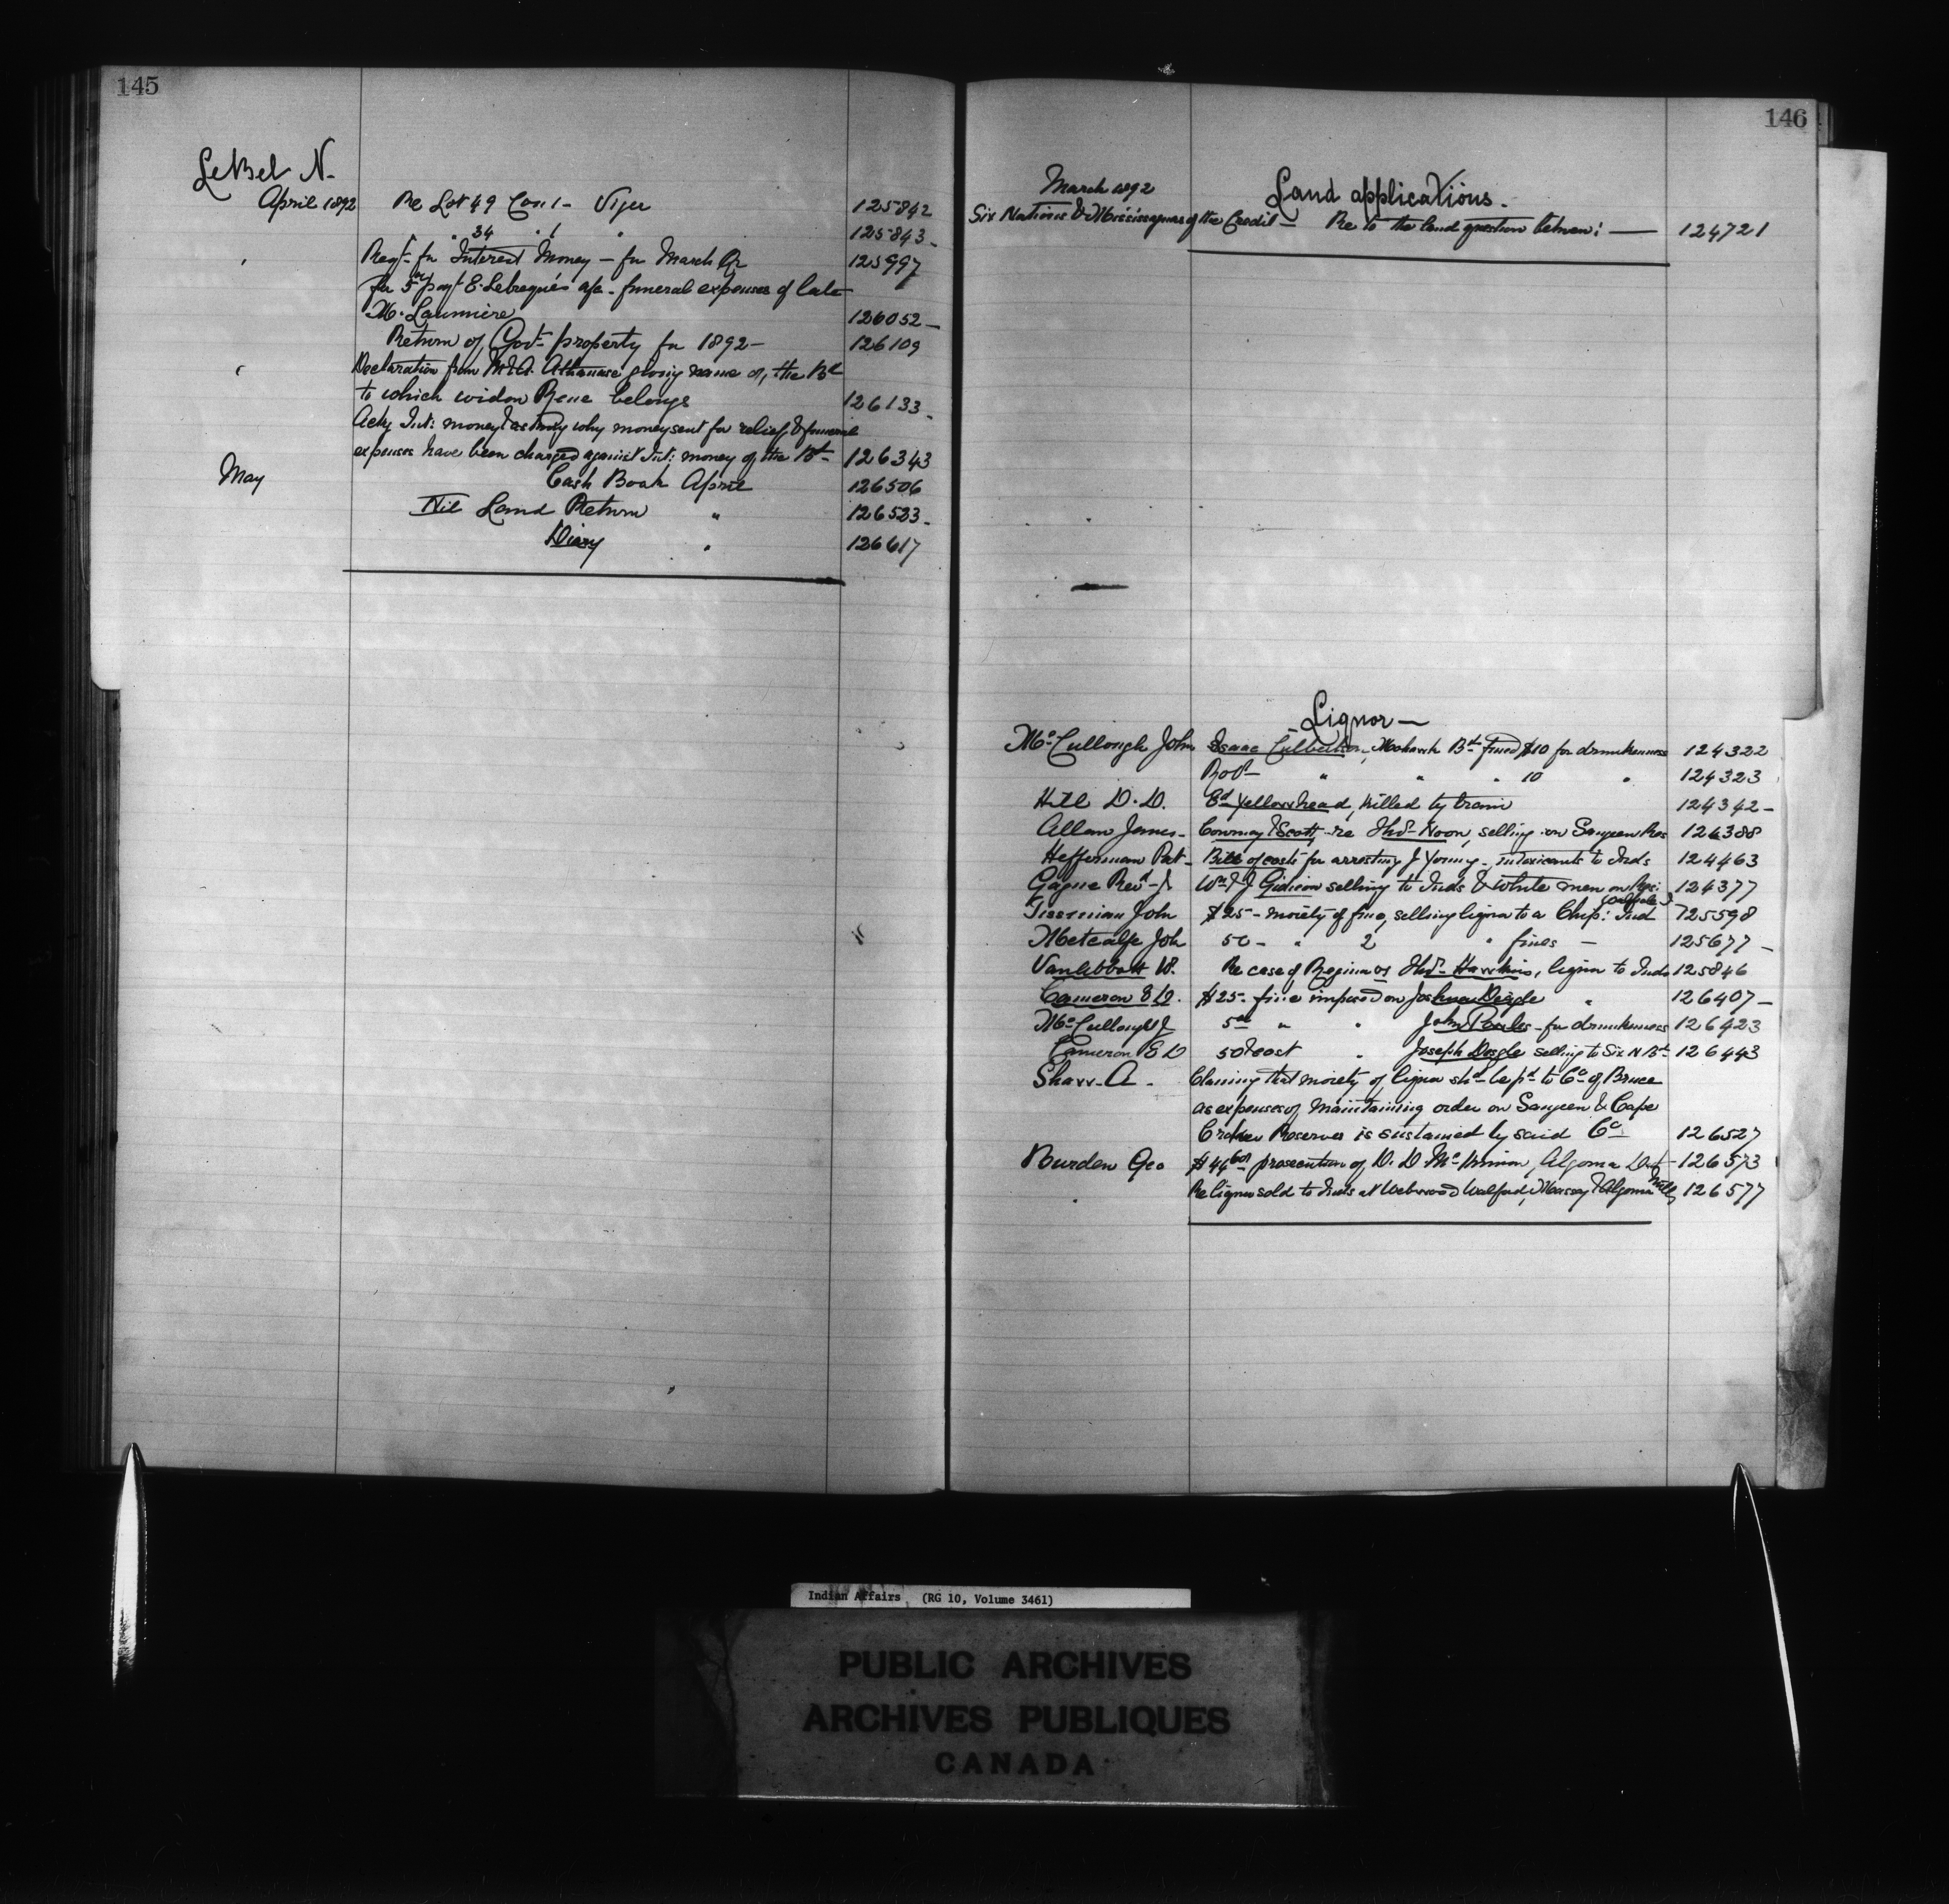 145
LeBel N.
April 1892 Re Lot 49 Con 1 - Viger 125842
" " 34 " 1 " 125843 -
" Reqt. for Interest Money - for March Qr 125997
for 5th payt E. Lebreque's a/c - funeral expenses of late
M. Launiere 126052 -
Return of Govt. property for 1892 - 126109
" Declaration from Athanase giving name of the Bd
to which widow Rene belongs 126133 -
Ackg Int: money & asking why money sent for relief & funeral
expenses have been charged against Int: money of the Bd - 126343
May Cash Book April 126506
Nil Land Return " 126523 -
Diary " 126617
146
March 1892 Land applications.
Six Nations & Mississaguas of the Credit - Re to the land question between: - 124721
Liquor -
McCullough John Isaac Culbertson, Mohawk Bd fined $10 for drunkenness 124322
Robt " " " 10 " 124323
Hill D. D. Ed Yellowhead, killed by train 124342 -
Allen James - Conway & Scott, re Thos. Noon, selling on Saugeen Res 124388
Heffernan Pat - Bill of costs for arresting J Young - intoxicants to Inds 124463
Gagne Revd J. Wm & J Gideon selling to Inds & White men on Res: 124377
John $25 - moiety of fine, selling liquor to a Chip: Ind 125598
Metcalfe John 50 - " 2 " fines - 125677 -
W. Re case of Regina vs Thos. Hawkins, liquor to Inds 125846
Cameron E D. $25 - fine imposed on Joshua Deigle " 126407 -
McCullough J 5 00 " " John - for drunkenness 126423
Cameron E D 50 & cost " Joseph Dogle selling to Six N Bd - 126443
Shaw A. Claming that moiety of liquor shd be pd to Co of Bruce
as expenses of maintaining order on Saugeen & Cape
Croker Reserves is sustained by said Co 126527
Burden Geo $44 60 prosecution of D. D. McKinnon, Algoma Dist - 126573
Re liquor sold to Inds at Webwood Walford, Massey & Algoma Mills 126577
Indian Affairs (RG 10, Volume 3461)
PUBLIC ARCHIVES
ARCHIVES PUBLIQUES
CANADA